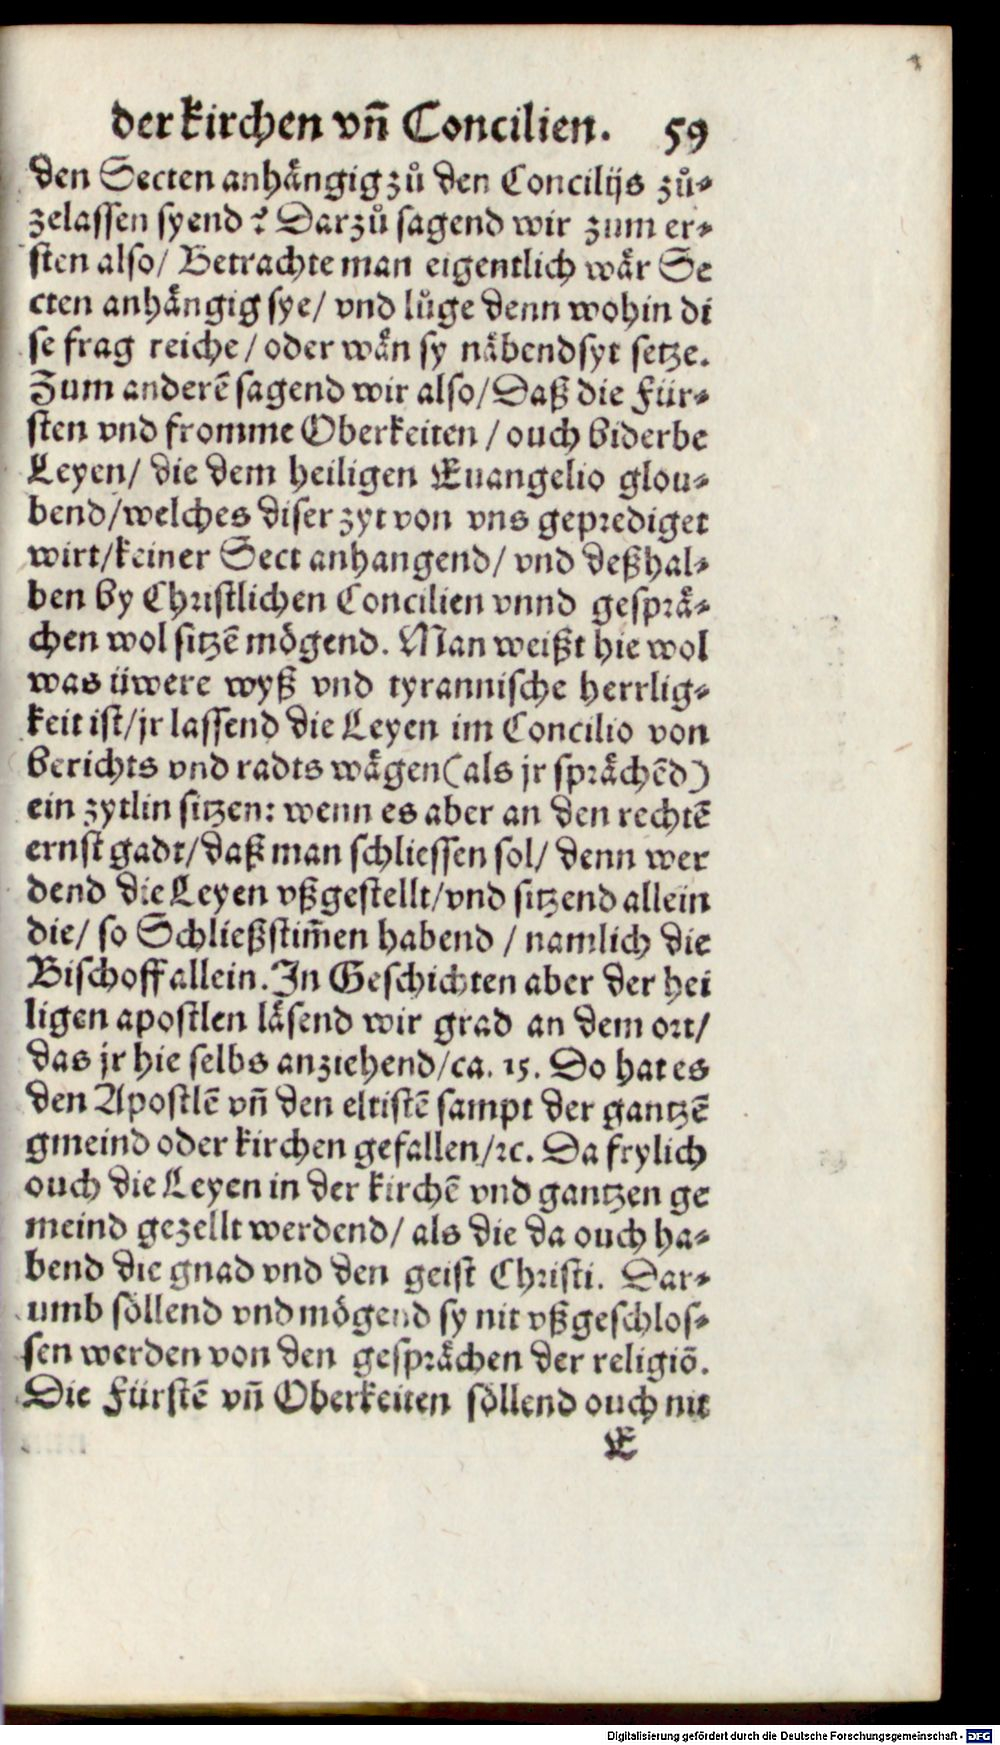 der kirchen vn̄ Concilien. 59
den Secten anhängig zuͦ den Concilijs zuͦ⸗
zelassen syend? Darzuͦ sagend wir zum er⸗
sten also/ Betrachte man eigentlich wär Se
cten anhängig sye/ vnd luͦge denn wohin di
se frag reiche/ oder wän sy näbendsyt setze.
Zum anderē sagend wir also/ Daß die Für⸗
sten vnd fromme Oberkeiten/ ouch biderbe
Leyen/ die dem heiligen Euangelio glou⸗
bend/ welches diser zyt von vns geprediget
wirt/ keiner Sect anhangend/ vnd deßhal⸗
ben by Christlichen Concilien vnnd gesprä⸗
chen wol sitzē mögend. Man weißt hie wol
was üwere wyß vnd tyrannische herrlig⸗
keit ist/ jr lassend die Leyen im Concilio von
berichts vnd radts wägen (als jr sprächēd)
ein zytlin sitzen: wenn es aber an den rechtē
ernst gadt/ daß man schliessen sol/ denn wer
dend die Leyen vßgestellt/ vnd sitzend allein
die/ so Schließstim̄en habend/ namlich die
Bischoff allein. In Geschichten aber der hei
ligen apostlen läsend wir grad an dem ort/
das jr hie selbs anziehend/ ca. 15. Do hat es
den Apostlē vn̄ den eltistē sampt der gantzē
gmeind oder kirchen gefallen/ ꝛc. Da frylich
ouch die Leyen in der kirchē vnd gantzen ge
meind gezellt werdend/ als die da ouch ha⸗
bend die gnad vnd den geist Christi. Dar⸗
umb söllend vnd mögend sy nit vßgeschlos⸗
sen werden von den gesprächen der religiō.
Die Fürstē vn̄ Oberkeiten söllend ouch nit
E
Digitalisierung gefördert durch die Deutsche Forschungsgemeinschaft - DFG